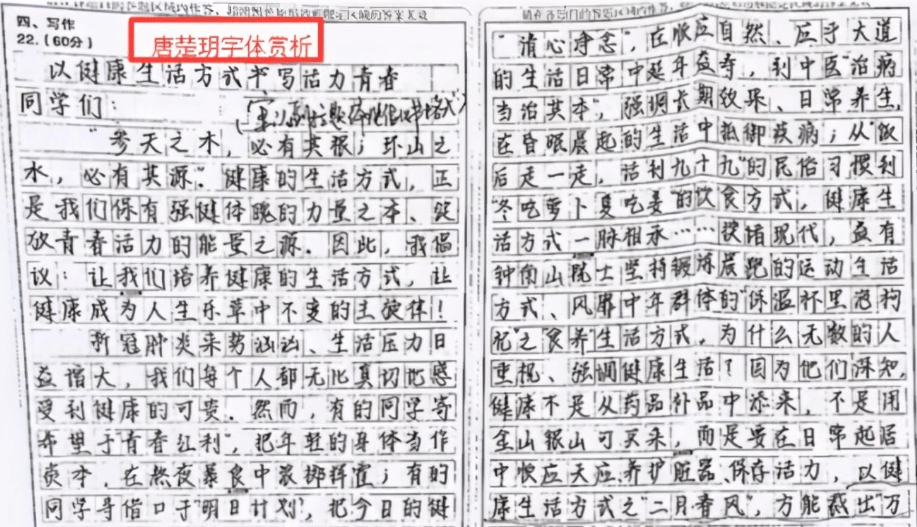 四、写作
22.（60分）
唐楚玥字体赏析
以健康生活方式书写活力青春
同学们：
“参天之木，必有其根；环山之
水，必有其源”。健康的生活方式，正
是我们保有强健体魄的力量之本、绽
放青春活力的能量之源。因此，我倡
议：让我们培养健康的生活方式，让
健康成为人生乐章中不变的主旋律！
新冠肺炎来势汹汹、生活压力日
益增大，我们每个人都无比真切地感
受到健康的可贵。然而，有的同学寄
希望于“青春红利”，把年轻的身体当作
资本，在熬夜暴食中浪掷挥霍；有的
同学寻借口于“明日计划”，把今日的健
“清心净念”，在顺应自然、应于大道
的生活日常中延年益寿，到中医“治病
当治其本”，强调长期效果、日常养生，
在昏眠晨起的生活中抵御疾病；从“饭
后走一走，活到九十九”的民俗习惯到
“冬吃萝卜夏吃姜”的饮食方式，健康生
活方式一脉相承……读诸现代，益有
钟南山院士坚持锻炼晨跑的运动生活
方式、风靡中年群体的“保温杯里泡枸
杞”之“食养”生活方式。为什么无数的人
重视、强调健康生活？因为他们深知，
健康不是从药品补品中添来，不是用
金山银山可买来，而是要在日常起居
中顺应天应、养护脏器、保存活力，以健
康生活方式之“二月春风”，方能裁出“万